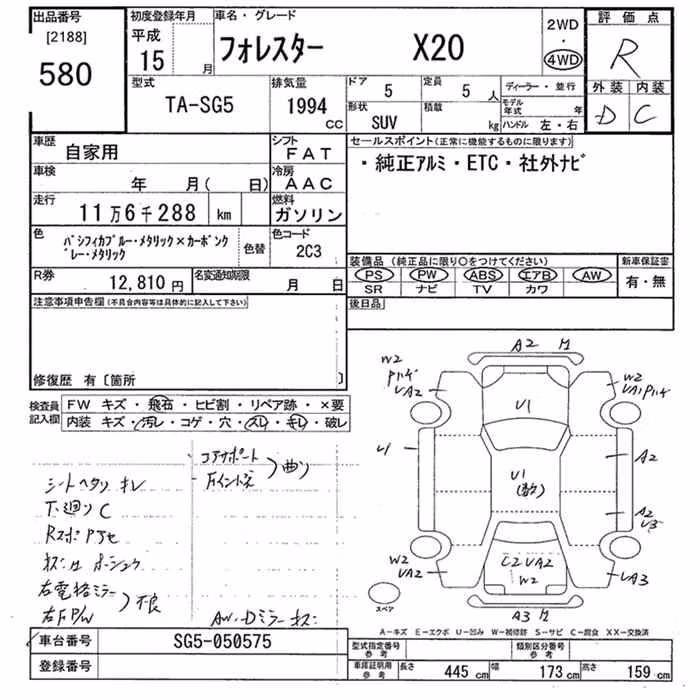 出品番号
[2188]
580
初度登録年月
平成
15 月
車名・グレード
フォレスター X20
2WD
・
4WD
評価点
R
外装 内装
D C
型式
TA-SG5
排気量
1994
CC
ドア
5
定員
5 人
形状
SUV
積載
kg
ディーラー・並行
モデル年式 年
ハンドル 左・右
車歴
自家用
シフト
FAT
車検
年 月( 日)
冷房
AAC
走行
11万6千288 km
燃料
ガソリン
色
パシフィカブルー・メタリック×カーボンク
レー・メタリック
色替
色コード
2C3
R券
12,810 円
名変通知期限
月 日
セールスポイント(正常に機能するものに限ります)
・純正アルミ・ETC・社外ナビ
装備品 (純正品に限り○をつけてください)
PS PW ABS エアB AW
SR ナビ TV カワ
新車保証書
有・無
後日品
注意事項申告欄(不具合内容等は具体的に記入して下さい)
修復歴 有〔箇所 〕
検査員記入欄
FW キズ・飛石・ヒビ割・リペア跡・×要
内装 キズ・汚レ・コゲ・穴・スレ・キレ・破レ
コアサポート
曲り
シートヘタリ
下廻りC
右電格ミラー
右F P/W
不良
AW・Dミラー キズ
A2
W2
VA2
W2
VA1
U1
U1
A2
U1
A2
W2
VA2
C2 VA2
W2
VA3
A3
スペア
A−キズ E−エクボ U−凹み W−補修跡 S−サビ C−腐食 XX−交換済
車台番号
SG5-050575
登録番号
型式指定番号
参考
類別区分番号
参考
車庫証明用
参考
長さ 445 cm 幅 173 cm 高さ 159 cm